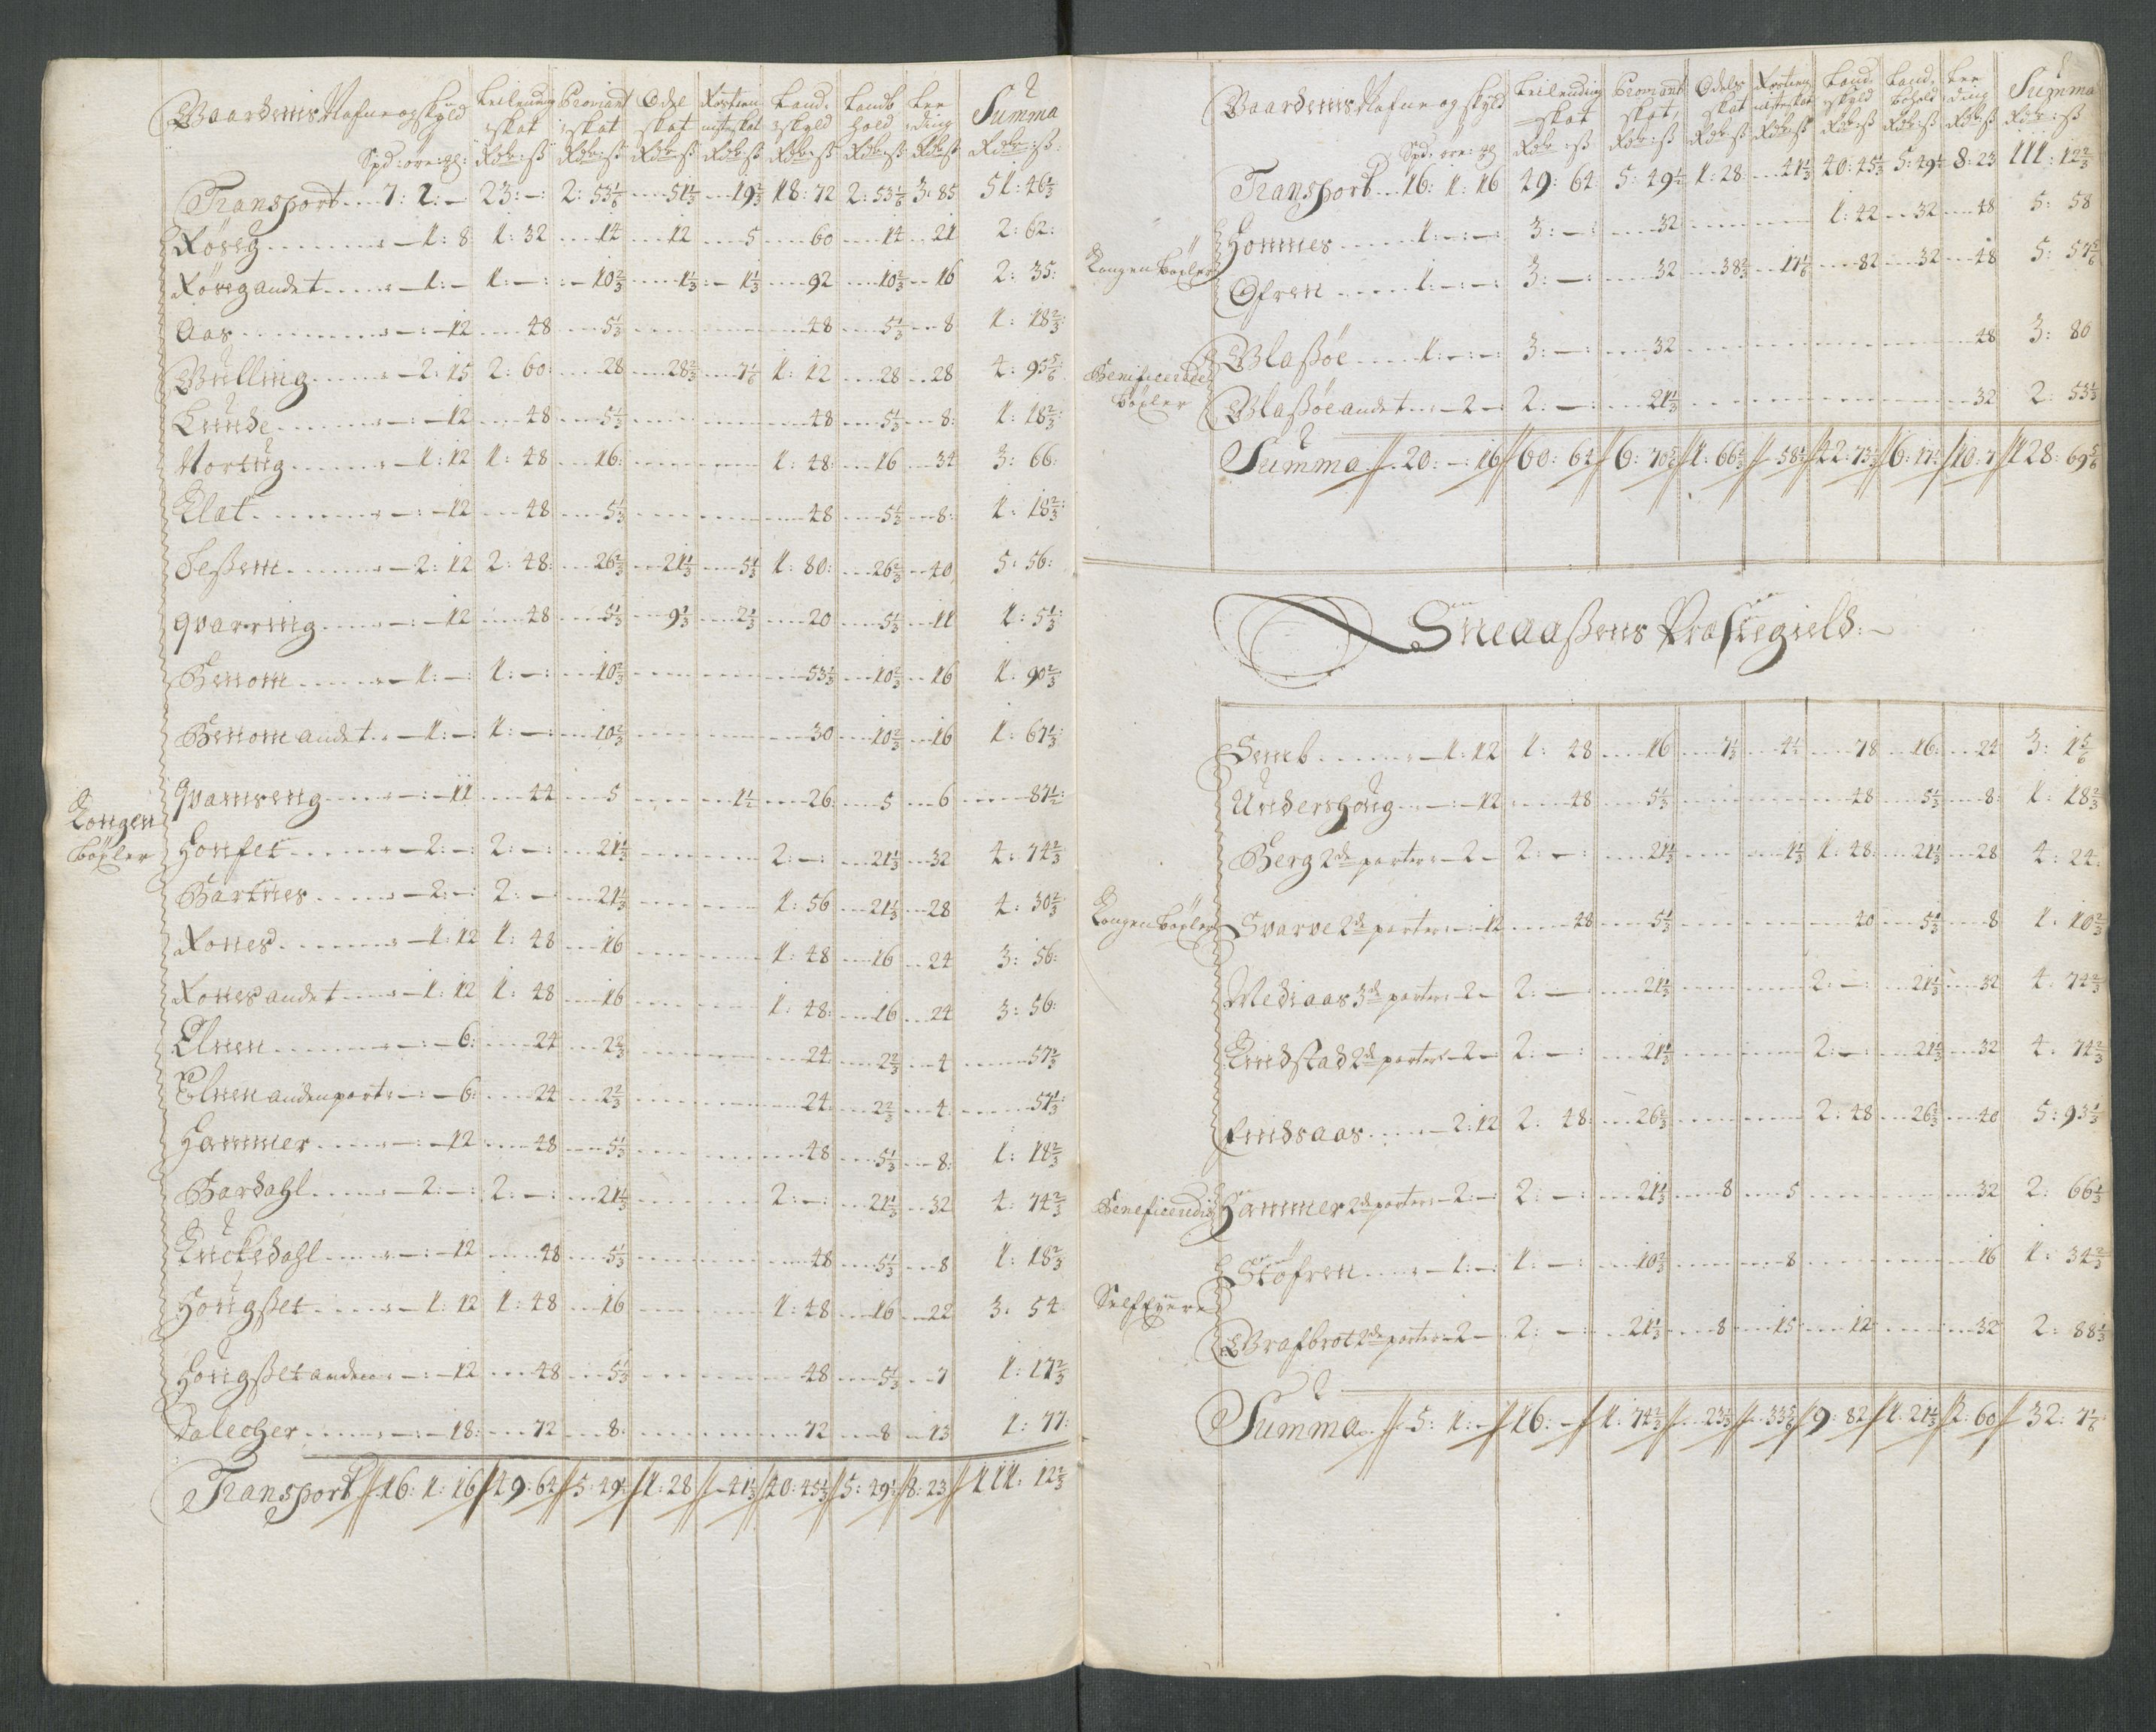 Gaardernis Nafne og skyld Leilending skat Proviant skat Odel skat Rostieniste skat Land skyld Lands hold Leeding Summa
Spd: öre: gl: Rdr: ß Rdr: ß Rdr ß Rdr ß Rdr ß Rdr: ß Rdr ß Rdr: ß:
Transport 7: 2: – 23: –: 2: 53 1/6 51 1/3 19 2/3 18: 72 2: 53 1/6 3: 85 51: 46 1/3
Röseg – 1: 8 1: 32 14 12 5 60 14 21 2: 62:
Röseg andet – 1: – 1: –: 10 2/3 1 1/3 1 1/3 92 10 2/3 16 2: 35:
Aas – : – 12 48 5 1/3 48 5 1/3 8 1: 18 2/3
Gulling – 2: 15 2: 60: 28 28 2/3 7 1/6 1: 12 28 28 4: 95 5/6
Lunde – : – 12 48 5 1/3 48 5 1/3 8: 1: 18 2/3
Nortug – 1: 12 1: 48 16: 1: 48: 16 34 3: 66:
Klat – : – 12 48 5 1/3 48 5 1/3 8: 1: 18 2/3
Seßem – 2: 12 2: 48: 26 2/3 21 1/3 5 1/3 1: 80: 26 2/3 40 5: 56:
qvarring – : – 12 48 5 1/3 9 1/3 2 1/3 20 5 1/3 11 1: 5 1/3
Benom – 1: –: 1: –: 10 2/3 53 1/3 10 2/3 16 1: 90 2/3
Benom andet – 1: –: 1: –: 10 2/3 30 10 2/3 16 1: 67 1/3
qvamseng – : – 11 44 5 1 1/2 26 5 6 87 1/2
Kongen böxler
Honfet – 2: –: 2: –: 21 1/3 2: –: 21 1/3 32 4: 74 2/3
Bartnes – 2: –: 2: –: 21 1/3 1: 56 21 1/3 28 4: 30 2/3
Rones – 1: 12 1: 48 16 1: 48 16 24 3: 56:
Rones andet – 1: 12 1: 48 16 1: 48: 16 24 3: 56:
Elnen – : – 6: 24 2 2/3 24: 2 2/3 4 57 1/3
Elnen anden part – : – 6: 24 2 2/3 24: 2 2/3 4 57 1/3
Hammer – : – 12 48 5 1/3 48 5 1/3 8: 1: 18 2/3
Bardahl – 2: –: 2: –: 21 1/3 2: –: 21 1/3 32 4: 74 2/3
Kuckedahl – : – 12 48 5 1/3 48 5 1/3 8 1: 18 2/3
Hougßet – 1: 12 1: 48 16 1: 48 16 22 3: 54
Hougßet – : – 12 48 5 1/3 48 5 1/3 7 1: 17 2/3
Dalecher – : – 18: 72 8: 72 8 13 1: 77:
Transport 16: 1: 16 49: 64 5: 49 1/2 1: 28 – 41 1/3 40: 45 1/3 5: 49 1/2 8: 23 111: 12 2/3
Gaardernis Nafne og skyld Leilending skat Proviant skat Odels skat Rostieniste skat Land skyld Land bohold Leeding Summa
Spd: öre: gl Rdr: ß Rdr: ß Rdr ß Rdr ß Rdr ß Rdr ß Rdr ß Rdr: ß
Transport 16: 1: 16 49: 64: 5: 49 1/2 1: 28 41 1/3 40: 45 1/3 5: 49 1/2 8: 23 111: 12 2/3
Kongen böxler
Hommes 1: –: –: 3: –: 32 1: 42 32 48 5: 58
Ofren 1: –: –: 3: –: 32 38 2/3 17 1/6 82 32 48 5: 57 5/6
Benificerede böxler
Blaßöe 1: –: –: 3: –: 32 48 3: 80
Blaßöe andet – 2 – 2: –: 21 1/3 32 2: 53 1/3
Summa 20: –: 16 60: 64 6: 70 5/6 1: 66 2/3 – 58 1/2 42: 73 1/3 6: 17 1/2 10: 7 128: 69 5/6
Sneaaßens Præstegield: –
Semb – 1: 12 1: 48 16 7 1/3 4 1/2 78 16: 24 3: 1 5/6
Undershoug – : – 12 48 5 1/3 48 5 1/3 8: 1: 18 2/3
Berg 2de parter – 2 – 2: –: 21 1/3 1 1/3 1: 48: 21 1/3 28 4: 24:
Kongen böxler
Svarve 2de parter – 12 48 5 1/3 40 5 1/3 8 1: 10 2/3
Mediaas 3de parter – 2 – 2: – 21 1/3 2: –: 21 1/3 32 4: 74 2/3
Kindstad 2de parter – 2 – 2: –: 21 1/3 2: –: 21 1/3 32 4: 74 2/3
Findsaas – 2: 12 2: 48: 26 2/3 2: 48 26 2/3 40 5: 93 1/3
Beneficendis
Hammer 2de parter – 2: –: 2: –: 21 1/3 8 5 32 2: 66 1/3
Stöfren – 1: –: 1: –: 10 2/3 8 16 1: 34 2/3
Self Eyere
Grafbrot 2de parter – 2 – 2: –: 21 1/3 8 15 12 32 2: 88 1/3
Summa 5: 1: – 16: – 1: 74 2/3 23 1/3 33 5/6 9: 82 1: 21 1/3 2: 60 32: 7 1/6